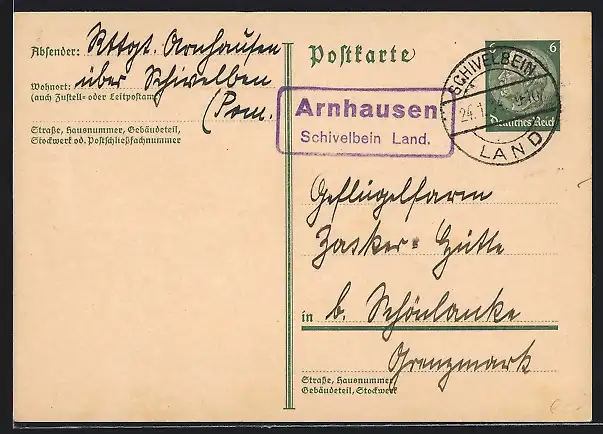 Absender: Rttgt. Arnhausen
Wohnort: über Schivelben
(auch Zustell- oder Leitpostamt)
(Pom.
Straße, Hausnummer, Gebäudeteil,
Stockwerk od. Postschließfachnummer
Postkarte
6 6
Deutsches Reich
SCHIVELBEIN
LAND
Arnhausen
Schivelbein Land.
Geflügelfarm
Zasker-Hütte
in b. Schönlanke
Grenzmark
Straße, Hausnummer,
Gebäudeteil, Stockwerk